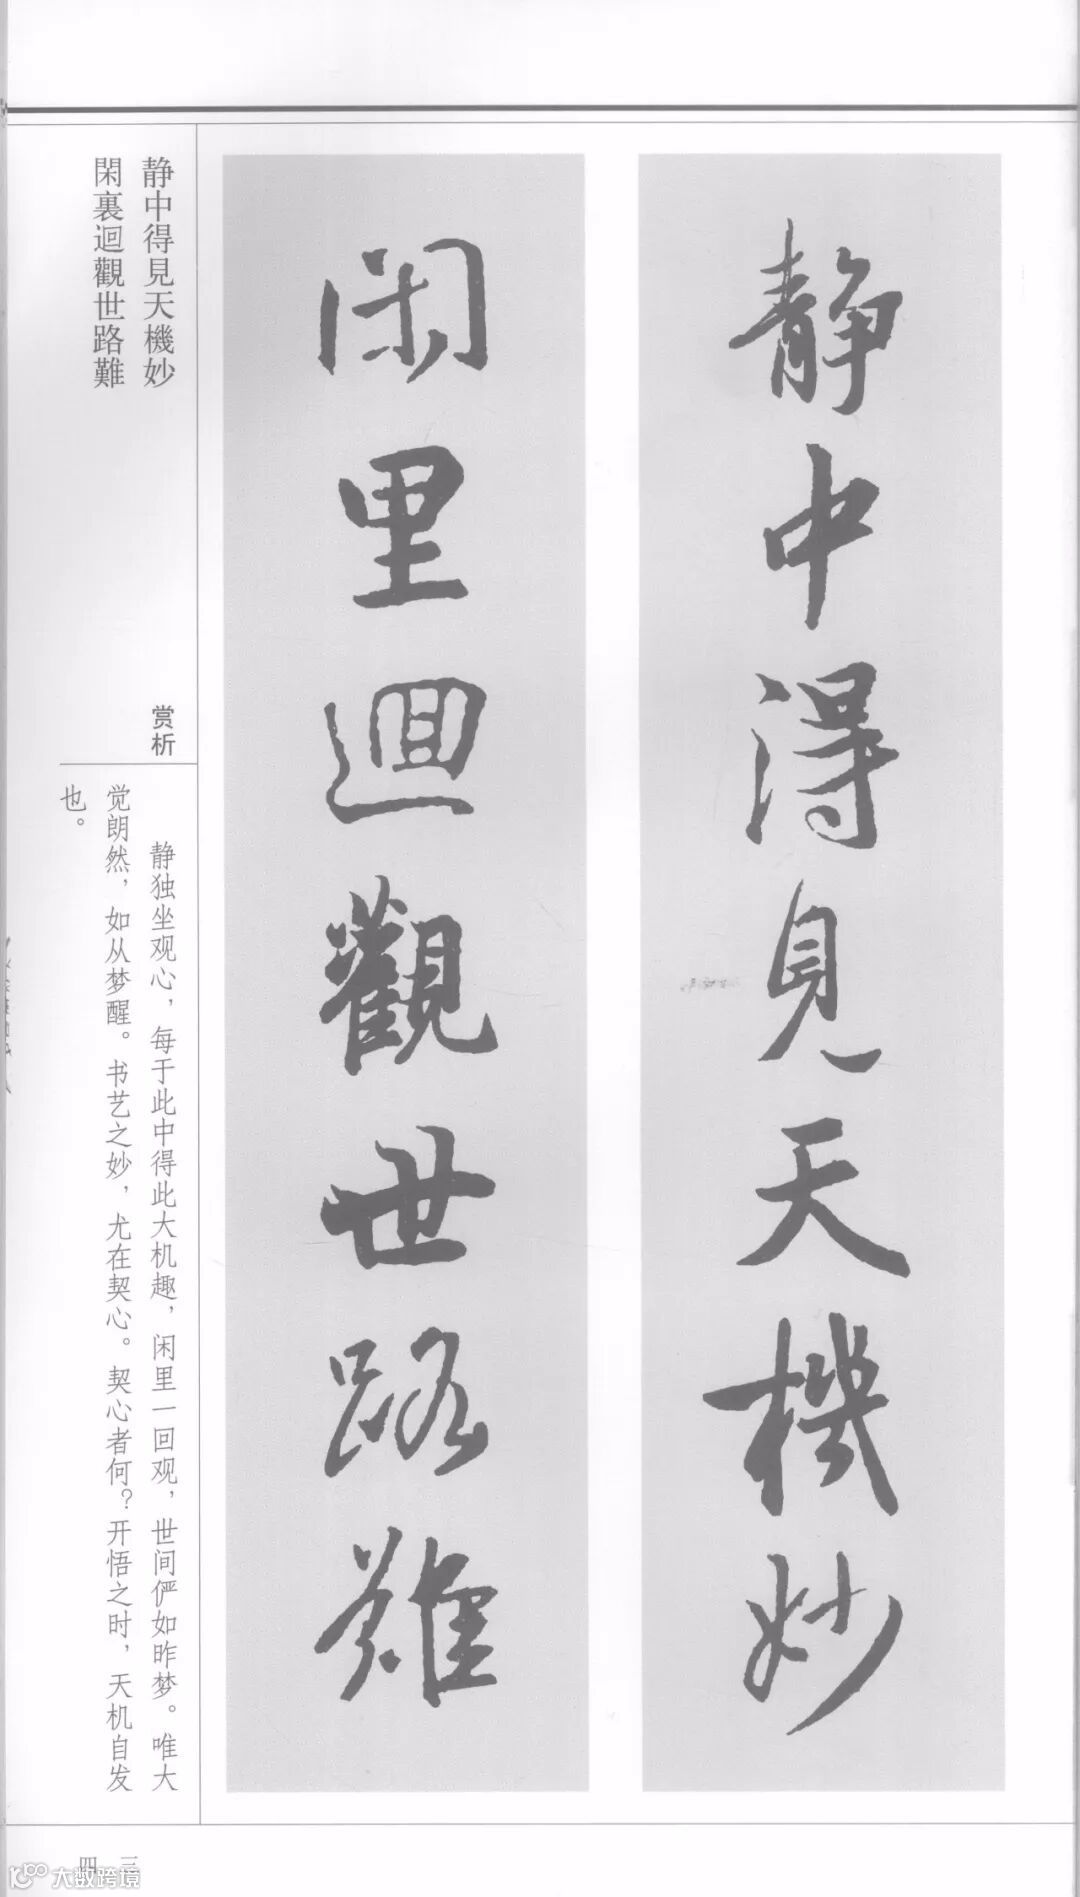 静中得見天機妙
闲里迴觀世路難
静中得見天機妙
閑裏迴觀世路難
赏析
静独坐观心，每于此中得此大机趣，闲里一回观，世间俨如昨梦。唯大
觉朗然，如从梦醒。书艺之妙，尤在契心。契心者何？开悟之时，天机自发
也。
四三
大数跨境